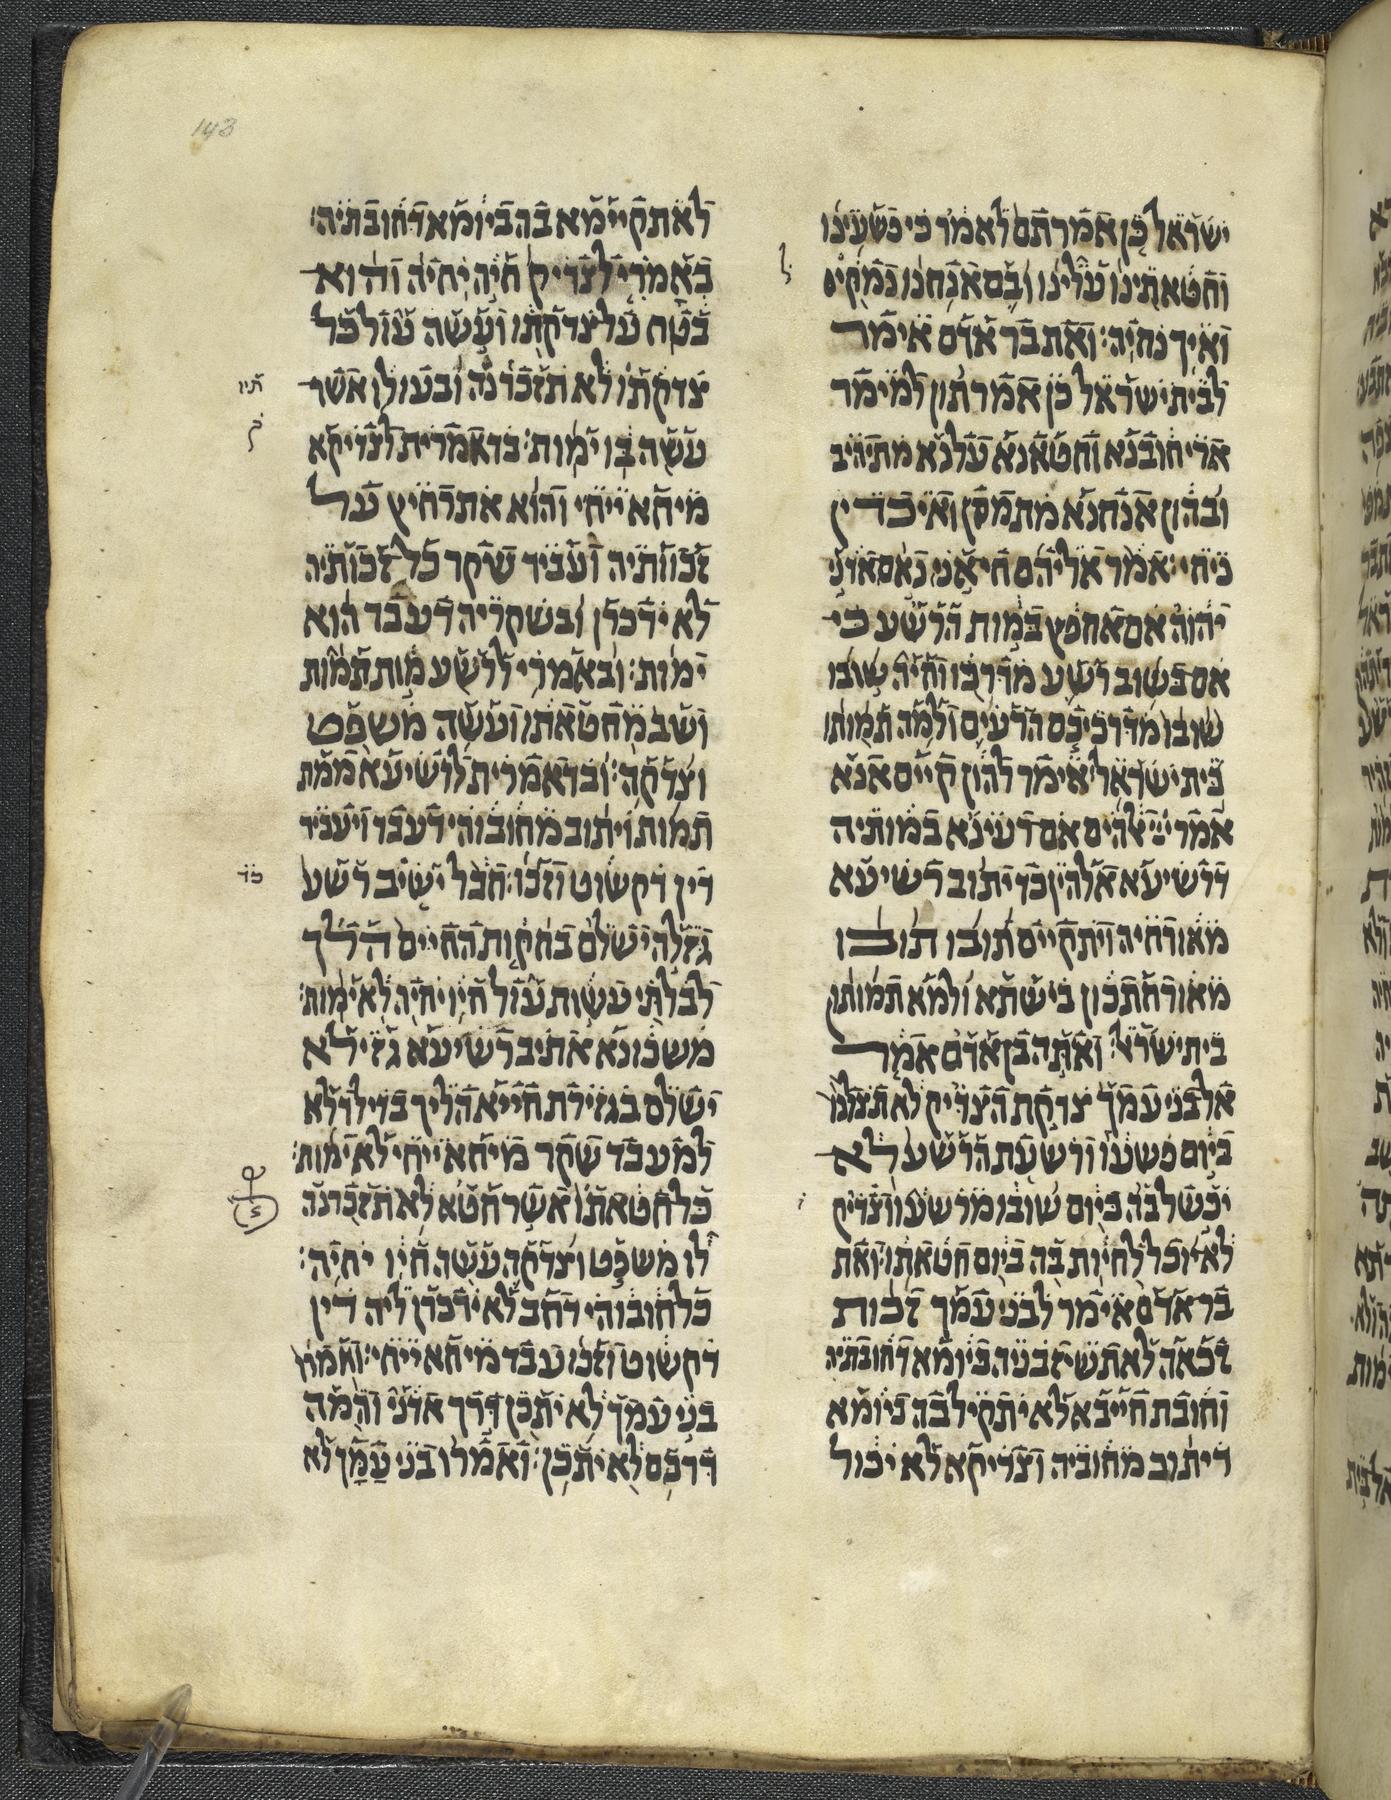 ישראל כן אמרתם לאמר כי פשעינו
וחטאתינו עלינו ובם אנחנו נמקים
ואיך נחיה: ואת בר אדם אימר
לבית ישראל כן אמרתון למימר
ארי חובנא וחטאנא עלנא מתיהיב
ובהון אנחנא מתמסן ואיכדין
ניחי: אמר אליהם חי אני נאם אדני
יהוה אם אחפץ במות הרשע כי
אם בשוב רשע מדרכו וחיה שובו
שובו מדרכיכם הרעים ולמה תמותו
בית ישראל: אימר להון קיים אנא
אמר אלהים אם רעינא במותיה
דרשיעא אלהין כד יתוב רשיעא
מאורחיה ויתקיים תובו תובו
מאורחתכון בישתא ולמא תמותון
בית ישראל: ואתה בן אדם אמר
אל בני עמך צדקת הצדיק לא תצלנו
ביום פשעו ורשעת הרשע לא
יכשל בה ביום שובו מרשעו וצדיק
לא יוכל לחיות בה ביום חטאתו: ואת
בר אדם אימר לבני עמך זכות
זכאה לא תשיזבניה ביומא דחובתיה
וחובת חייבא לא יתקיל בה ביומא
דיתוב מחוביה וצדיקא לא יכול
לאתקיימא בה ביומא דחובתיה:
באמרי לצדיק חיה יחיה והוא
בטח על צדקתו ועשה עול כל
צדקתו לא תזכרנה ובעולו אשר
עשה בו ימות: כד אמרית לצדיקא
מיחא ייחי והוא אתרחיץ על
זכותיה ועביד שקר כל זכותיה
לא ידכרן ובשקריה דעבד הוא
ימות: ובאמרי לרשע מות תמות
ושב מחטאתו ועשה משפט
וצדקה: וכד אמרית לרשיעא ממת
תמות ויתוב מחובוהי דעבד ויעביד
דין דקשוט וזכו: חבל ישיב רשע
גזלה ישלם בחקות החיים הלך
לבלתי עשות עול חיו יחיה לא ימות:
משכונא אתיב רשיעא גזילא
ישלם בגזירת חייא הליך בדיל דלא
למעבד שקר מיחא ייחי לא ימות:
כל חטאתו אשר חטא לא תזכרנה
לו משפט וצדקה עשה חיו יחיה:
כל חובוהי דחב לא ידכרן ליה דין
דקשוט וזכו עבד מיחא ייחי: ואמרו
בני עמך לא יתכן דרך אדני והמה
דרכם לא יתכן: ואמרו בני עמך לא
143
תיו
כד